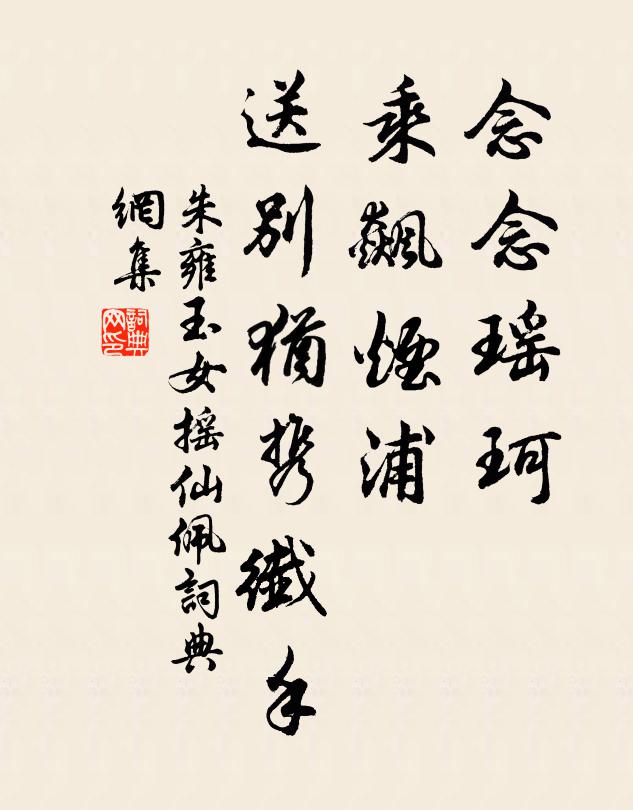 念念瑶珂
乘飆煙浦
送別猶携纖手
朱雍玉女摇仙佩詞典
網集
詞典
网印